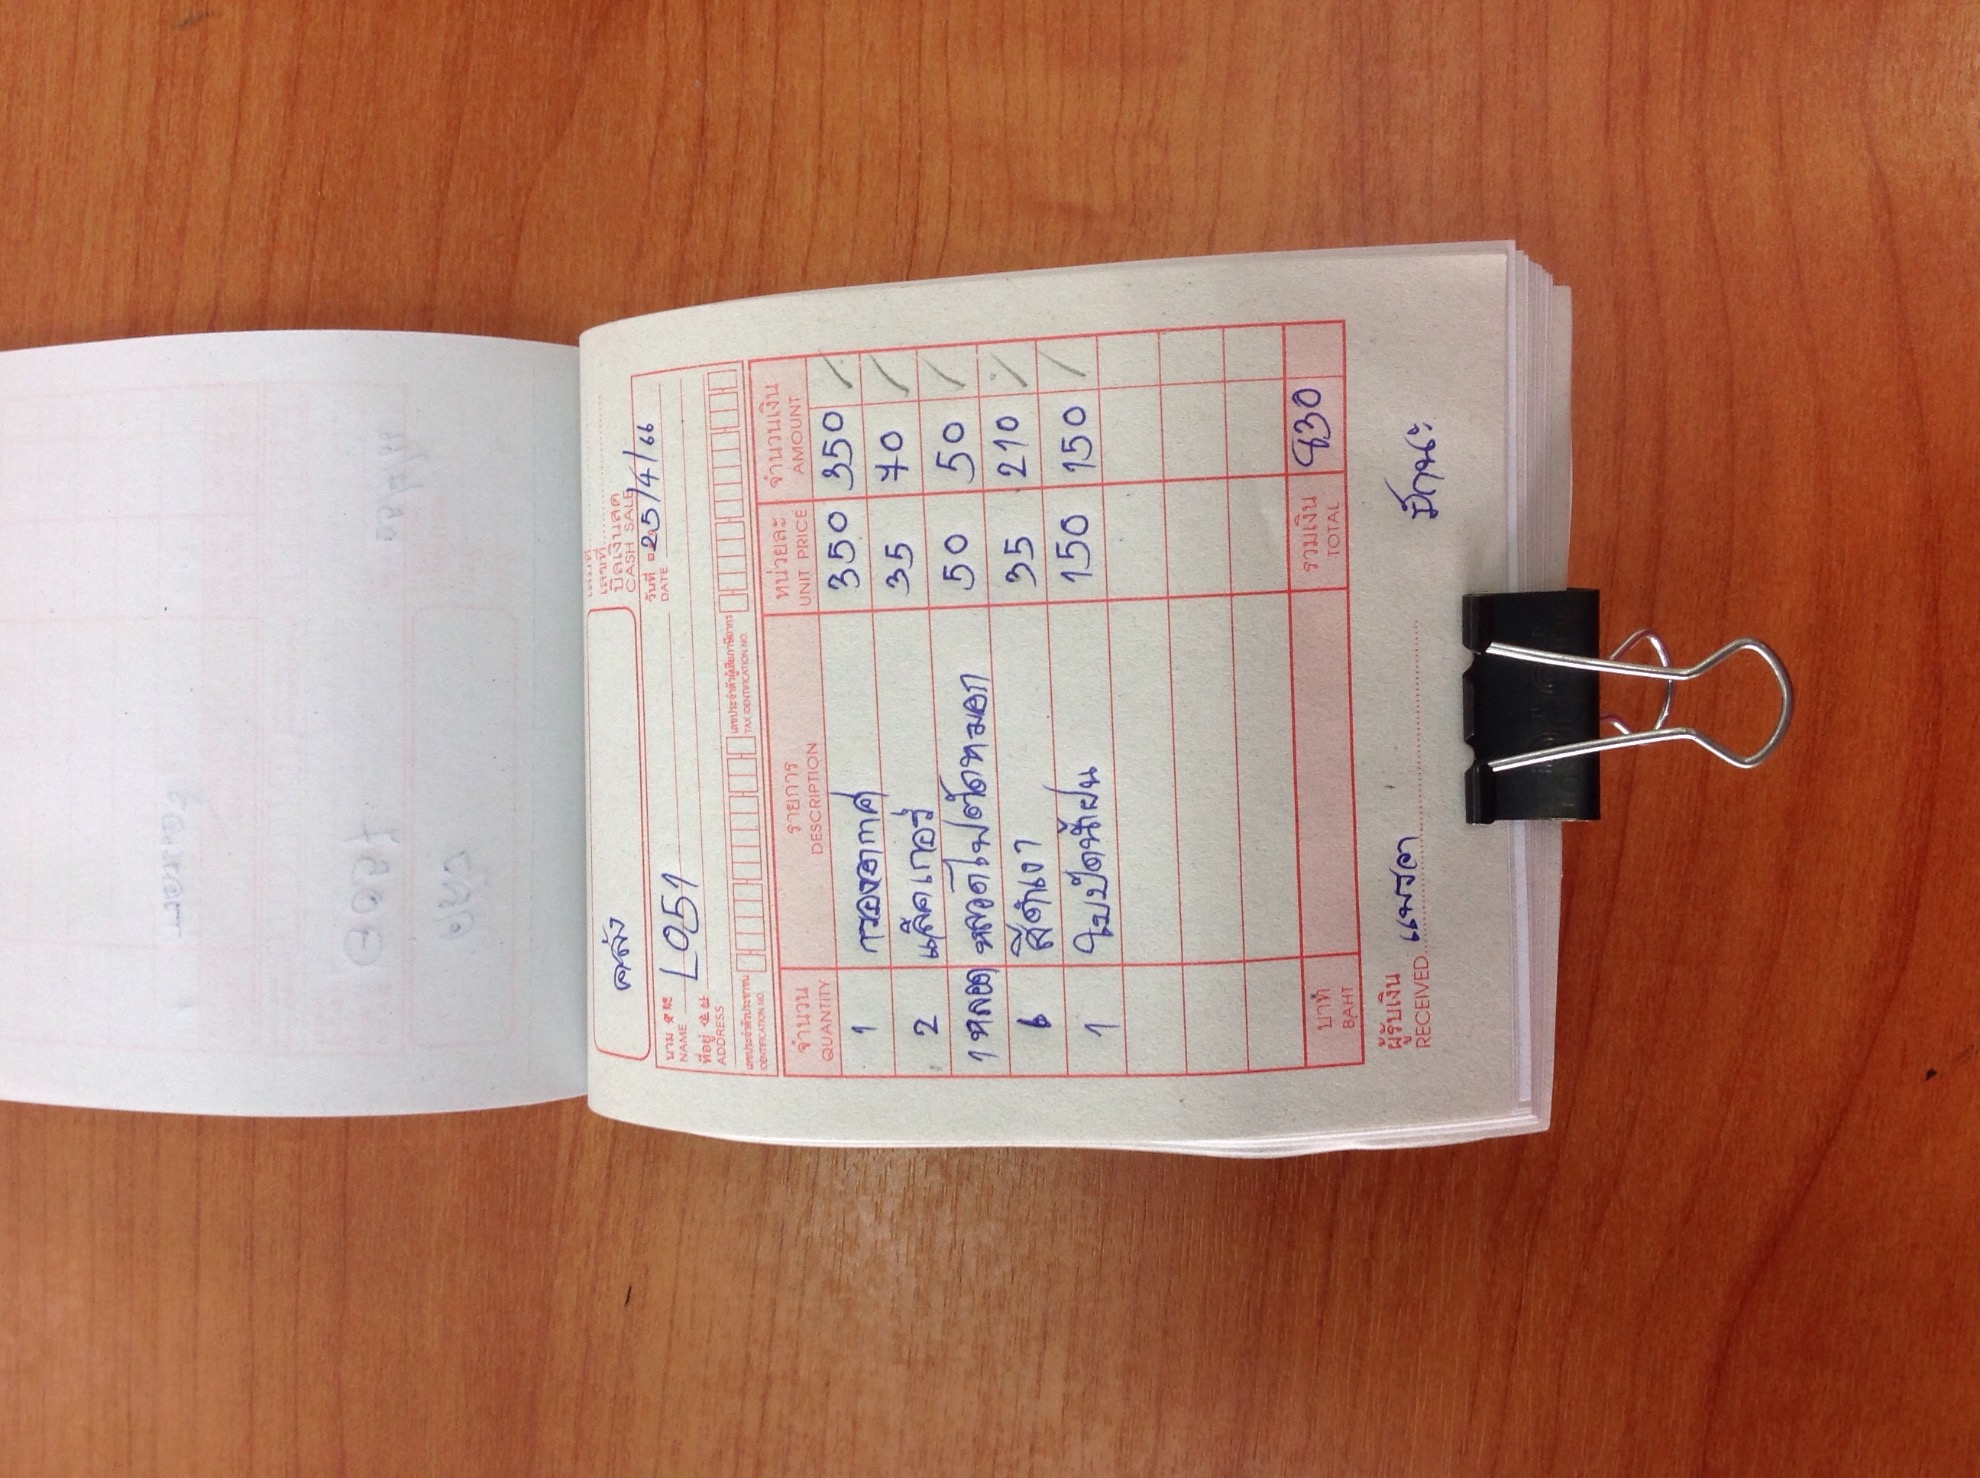 คลัง
เล่มที่
เลขที่
บิลเงินสด
CASH SALE
วันที่ 25/4/66
DATE
นาม L051
NAME
ที่อยู่
ADDRESS
เลขประจำตัวประชาชน เลขประจำตัวผู้เสียภาษีอากร
IDENTIFICATION NO. TAX IDENTIFICATION NO.
จำนวน รายการ หน่วยละ จำนวนเงิน
QUANTITY DESCRIPTION UNIT PRICE AMOUNT
1 กรองอากาศ 350 350
2 แล็คเกอร์ 35 70
1 หลอด หลอดไฟตัดหมอก 50 50
6 สีดำเงา 35 210
1 ใบปัดน้ำฝน 150 150
บาท รวมเงิน 830
BAHT TOTAL
ผู้รับเงิน
RECEIVED